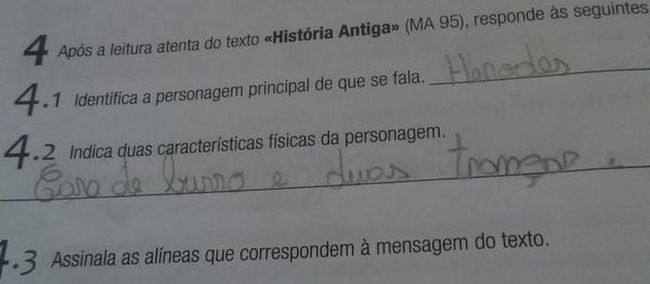 4 Após a leitura atenta do texto «História Antiga» (MA 95), responde às seguintes
4.1 Identifica a personagem principal de que se fala. Herodes
4.2 Indica duas características físicas da personagem.
Cara de burro e duas tranças
4.3 Assinala as alíneas que correspondem à mensagem do texto.